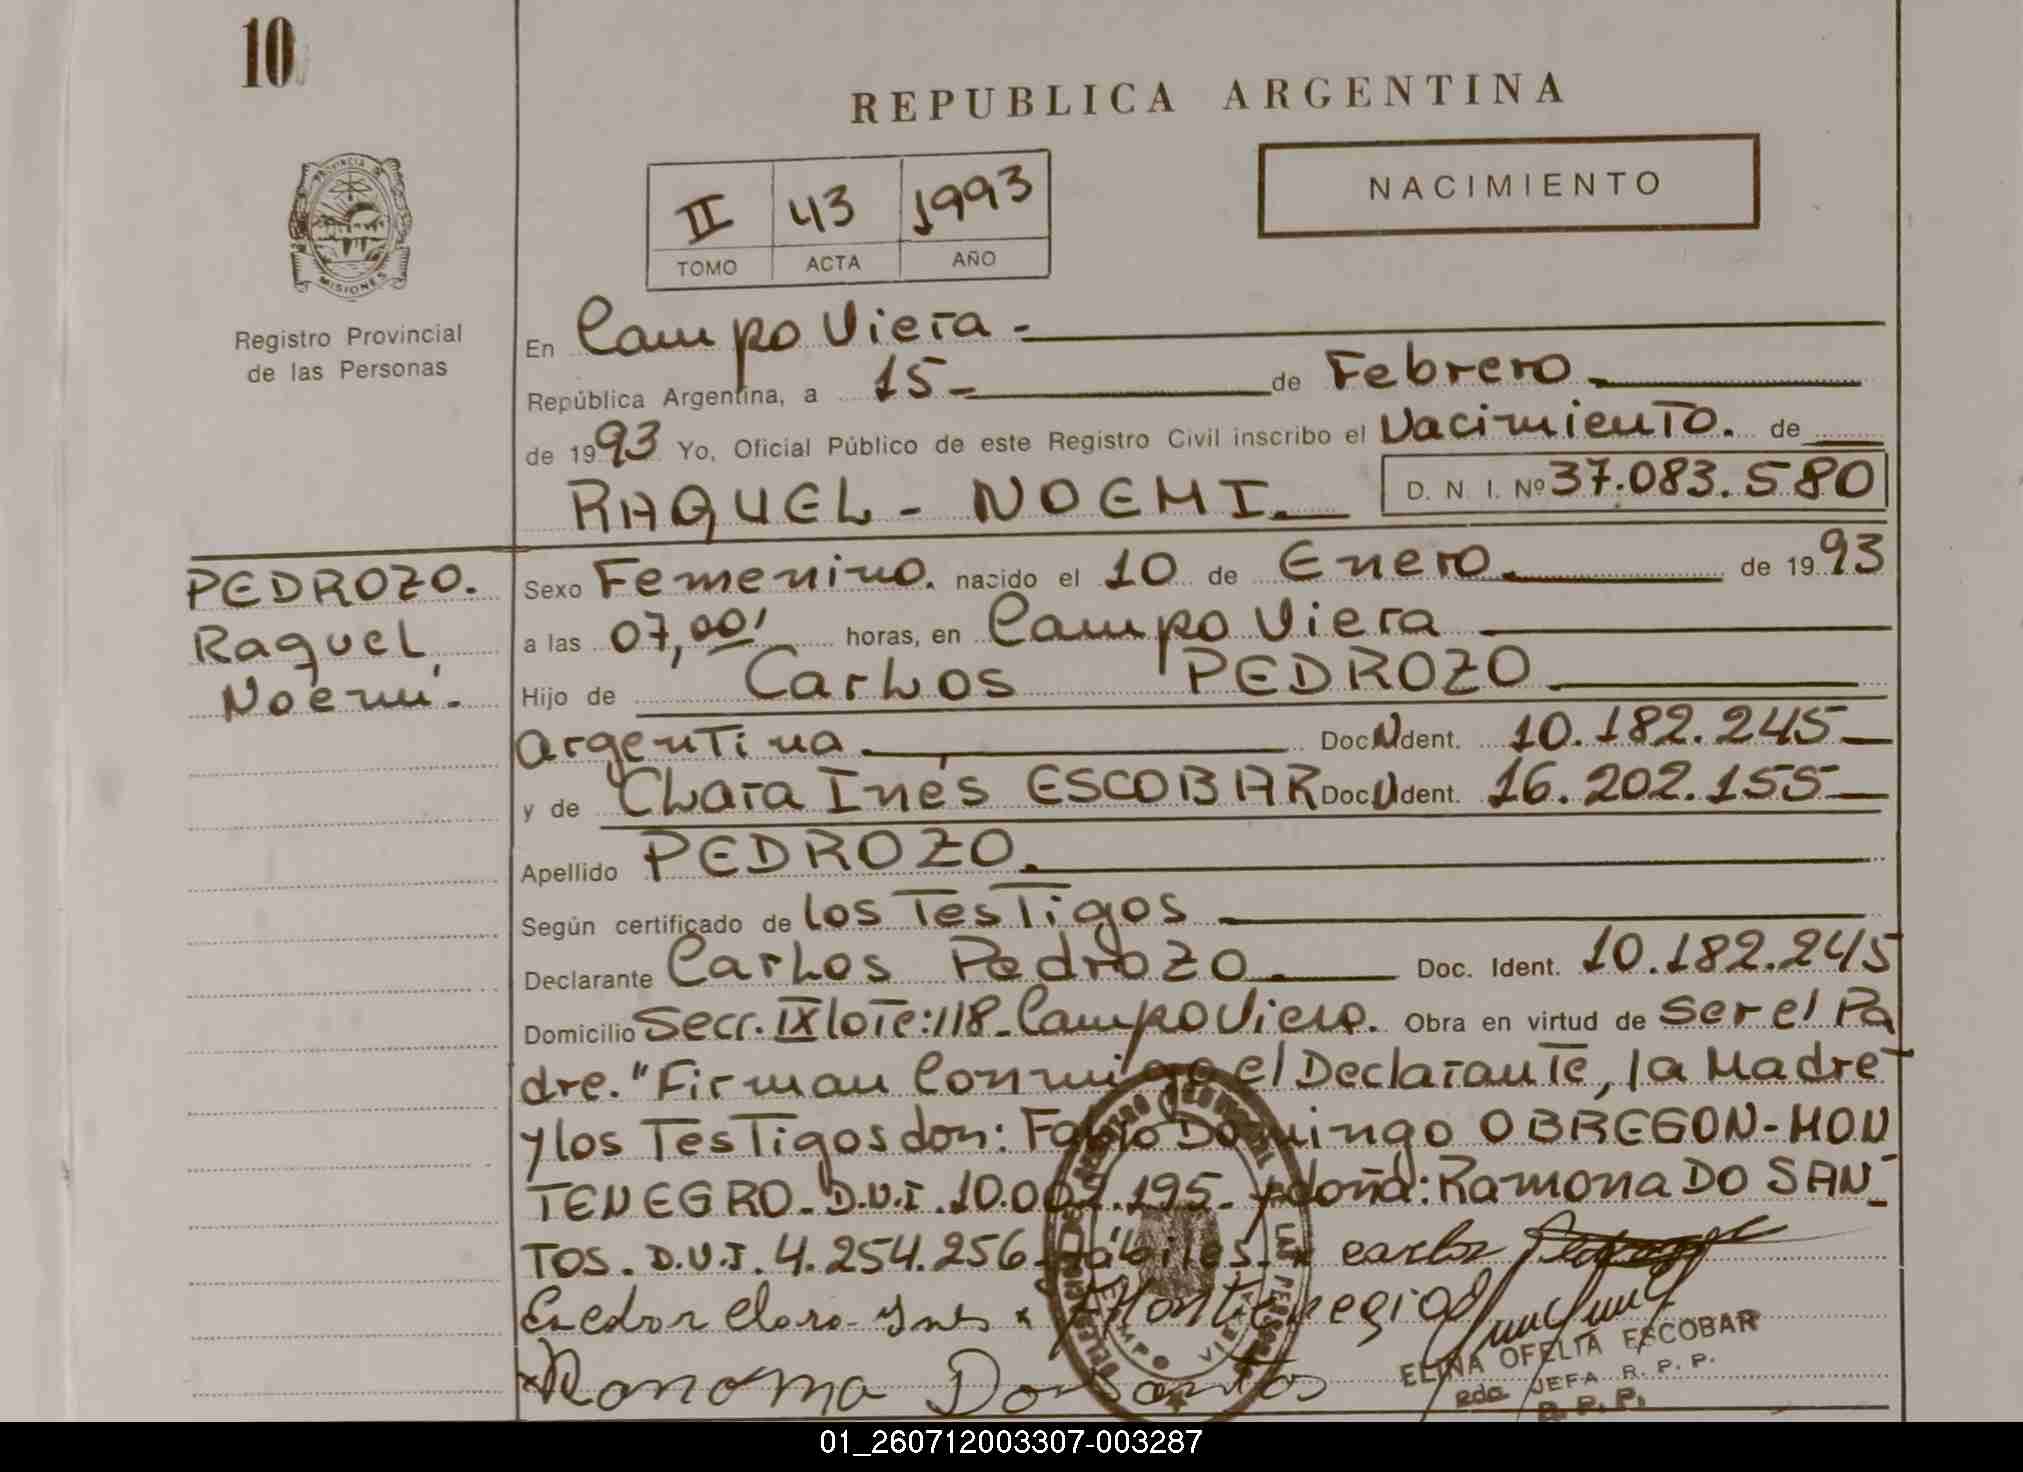 10
REPUBLICA ARGENTINA
NACIMIENTO
II 43 1993
TOMO ACTA AÑO
PROVINCIA DE
MISIONES
Registro Provincial
de las Personas
En Campo Viera -
República Argentina, a 15 - de Febrero -
de 1993 Yo, Oficial Público de este Registro Civil inscribo el Nacimiento. de
RAQUEL - NOEMI. D. N. I. Nº 37.083.580
PEDROZO.
Raquel
Noemí.
Sexo Femenino. nacido el 10 de Enero. de 1993
a las 07,00' horas, en Campo Viera
Hijo de Carlos PEDROZO
argentina Doc. Ident. 10.182.245
y de Clara Inés ESCOBAR Doc. Ident. 16.202.155
Apellido PEDROZO.
Según certificado de los Testigos
Declarante Carlos Pedrozo. Doc. Ident. 10.182.245
Domicilio Secc. IX lote: 118 - Campo Viera. Obra en virtud de Ser el Pa
dre. "Firman Conmigo el Declarante, la Madre
y los Testigos don: Fabio Domingo OBREGON - MON
TENEGRO - D.N.I. 10.002.195 - y doña: Ramona DO SAN-
TOS. D.N.I. 4.254.256 - hábiles - carlos
Escobar Clara Ines x
x Ramona Do Santos
ELINA OFELIA ESCOBAR
JEFA R. P. P.
R. P. P.
01_260712003307-003287